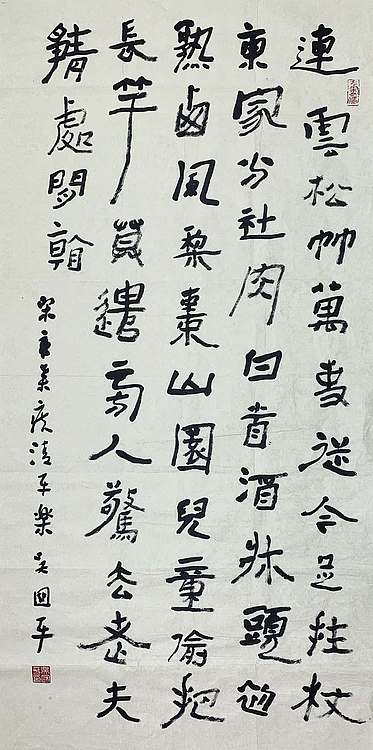 連雲松竹萬事從今足拄杖
東家分社肉白酒牀頭初
熟西風梨棗山園兒童偷把
長竿莫遣旁人驚去老夫
靜處閒看
宋辛棄疾清平樂 吳國平